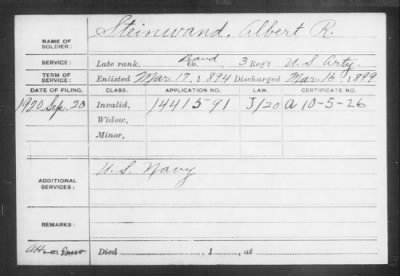 NAME OF SOLDIER: Steinwand, Albert R.
SERVICE: Late rank, Band Co. 3 Reg't U.S. Arty.
TERM OF SERVICE: Enlisted Mar. 17, 1894 Discharged Mar. 16, 1899
DATE OF FILING. CLASS. APPLICATION NO. LAW. CERTIFICATE NO.
1920 Sep. 20 Invalid, 1441591 J/20 A 10-5-26
Widow,
Minor,
ADDITIONAL SERVICES: U.S. Navy
REMARKS:
Died , 1 , at